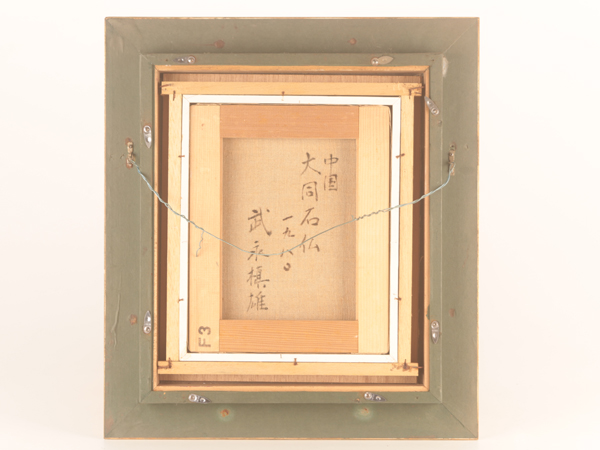 中国
大同石仏
一九八〇
武永槙雄
F3